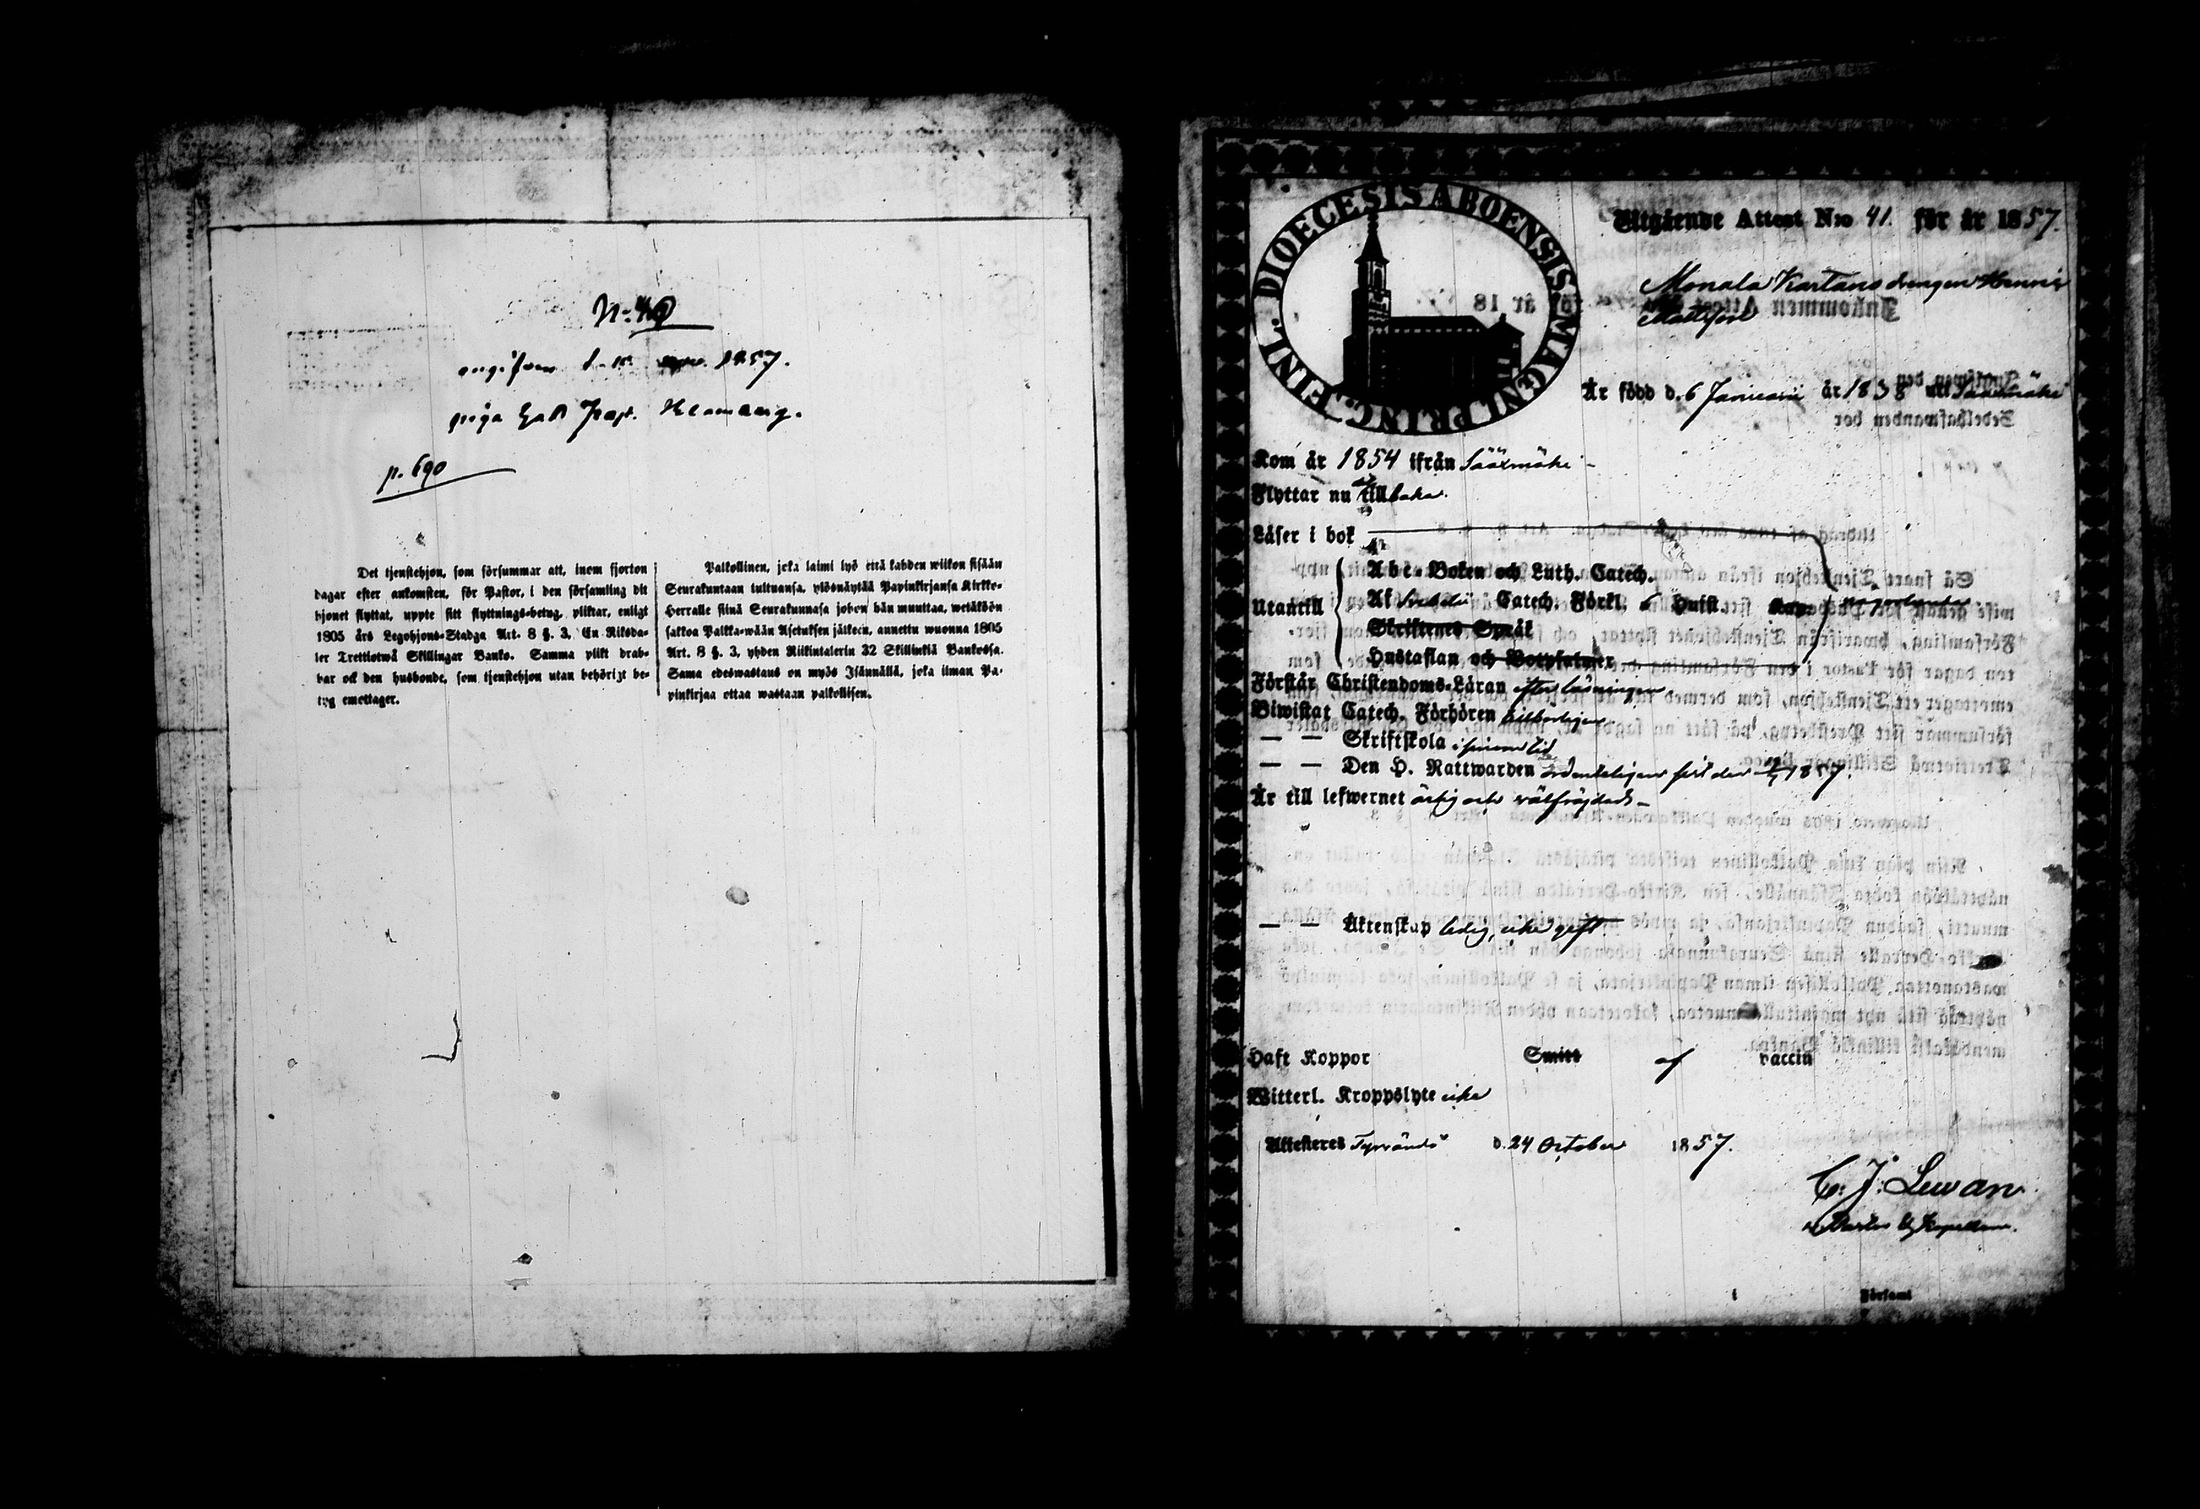 N:o 40
angifven d. 15 1857.
piga
p. 690
Det tjenstehjon, som försummar att, inom fjorton
dagar efter ankomsten, för Pastor, i den församling dit
hjonet flyttat, uppte sitt flyttnings-betyg, pliktar, enligt
1805 års Legohjons-Stadga Art. 8 §. 3, En Riksda-
ler Trettiotwå Skillingar Banko. Samma plikt drab-
bar ock den husbonde, som tjenstehjon utan behörigt be-
tyg emottager.
Palkollinen, joka laimi lyö että kahden wiikon sisään
Seurakuntaan tultuansa, ylösnäytää Papinkirjansa Kirkko-
Herralle siinä Seurakunnasa johon hän muuttaa, wetäköön
sakkoa Palkka-wään Asetuksen jälkeen, annettu wuonna 1805
Art. 8 §. 3, yhden Riikintalerin 32 Skillinkiä Bankossa.
Sama edeswastaus on myös Isännällä, joka ilman Pa-
pinkirjaa ottaa wastaan palkollisen.
DIOECESIS ABOENSIS MAGNI PRINC. FINL.
Utgående Attest N:o 41. för år 1857.
Monala Kartano drengen
Är född d. 6 Januarii år 1838 uti Sääxmäki
Kom år 1854 ifrån Sääxmäki
Flyttar nu tillbaka.
Läser i bok
Utantill
Abc-Boken och Luth. Catech.
Af Svebelii Catech. Förkl. 6 Hufst.
Skriftenes Språk
Hustaflan och Botpsalmer
Förstår Christendoms-Läran efter läsningen
Biwistat Catech. Förhören
— — Skriftskola i sinom tid
— — Den H. Nattwarden ordenteligen sist den 1857.
Är till lefwernet ärlig och välfrägdad
— — Äktenskap ledig, icke gift
Haft Koppor Smitt af vaccin
Witterl. Kroppslyte icke
Attesteres Tyrvändö d. 24 October 1857.
C. J. Lewan
Församl